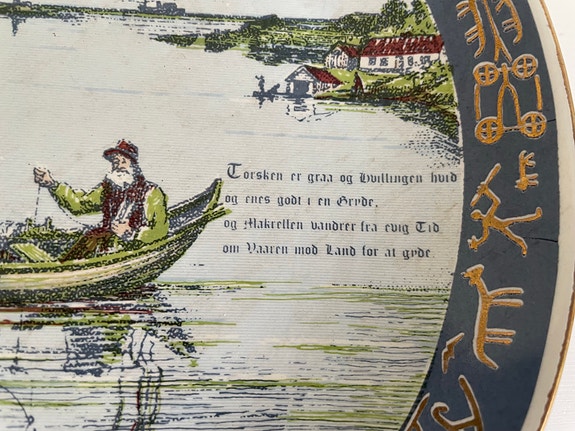 Torsken er graa og Hvillingen hvid
og enes godt i en Gryde,
og Makrellen vandrer fra evig Tid
om Vaaren mod Land for at gyde.